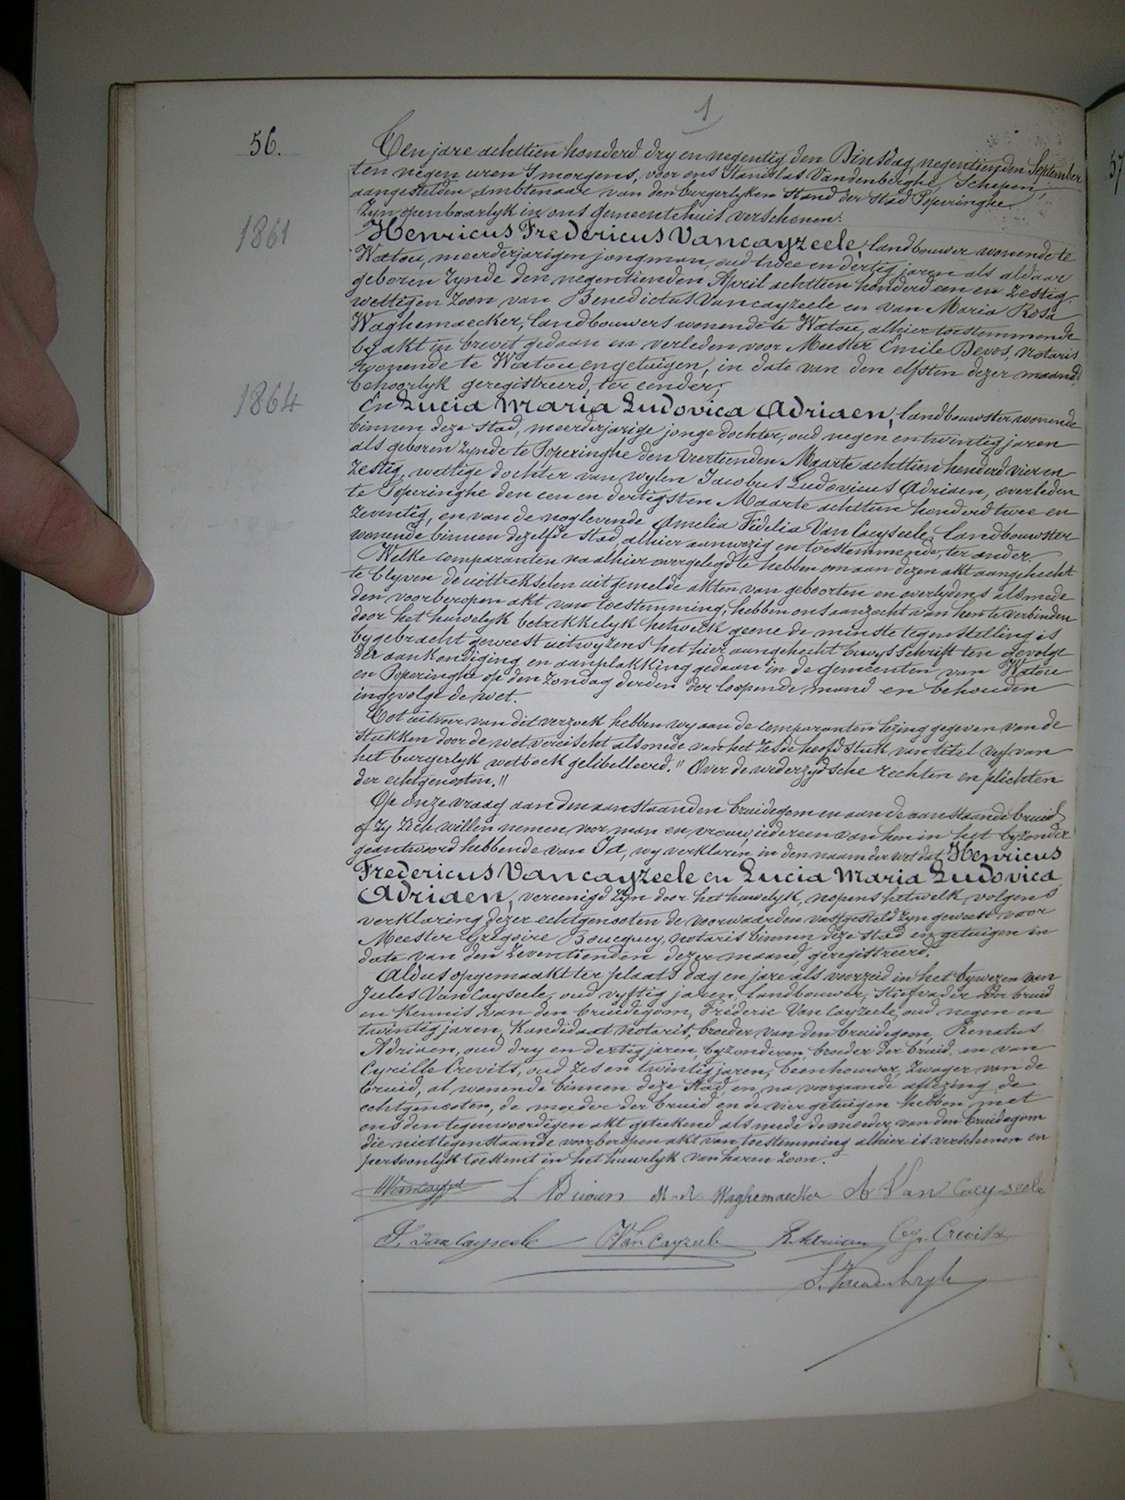 1
56.
Ten jare achttien honderd dry en negentig den Dinsdag negentienden September
ten negen uren 's morgens, voor ons Stanislas Vandenberghe, Schepen,
aangestelden ambtenaar van den burgerlyken Stand der Stad Poperinghe
Zyn openbaarlyk in ons Gemeentehuis verschenen:
1861
Henricus Fredericus Vancayzeele, landbouwer wonende te
Watou, meerderjarigen jongman, oud twee en dertig jaren als aldaar
geboren zynde den negentienden April achttien honderd een en zestig,
wettigen zoon van Benedictus Vancayzeele en van Maria Rosa
Waghemaecker, landbouwers wonende te Watou, alhier toestemmende
by akt in brevet gedaan en verleden voor Meester Emile Devos, notaris
wonende te Watou en getuigen, in date van den elfsten dezer maand,
behoorlyk geregistreerd, ter eender;
1864
En Lucia Maria Ludovica Adriaen, landbouwster wonende
binnen deze Stad, meerderjarige jonge dochter, oud negen en twintig jaren
als geboren zynde te Poperinghe den veertienden Maarte achttien honderd vier en
zestig, wettige dochter van wylen Jacobus Ludovicus Adriaen, overleden
te Poperinghe den een en dertigsten Maarte achttien honderd twee en
zeventig, en van de noglevende Amelia Fidelia Van Cayseele, landbouwster
wonende binnen dezelfde Stad, alhier aanwezig en toestemmende, ter ander.
Welke comparanten na alhier overgelegd te hebben om aan dezen akt aangehecht
te blyven de uittrekselen uit gemelde akten van geboorten en overlydens alsmede
den voorberoepen akt van toestemming, hebben ons aanzocht van hen te verbinden
door het huwelyk betrekkelyk hetwelk geene de minste tegenstelling is
bygebracht geweest uitwyzens het hier aangehecht bewysschrift ten gevolge
der aankondiging en aanplakking gedaan in de Gemeenten van Watou
en Poperinghe op den Zondag derden der loopende maand en behouden
ingevolge de wet.
Tot uitvoer van dit verzoek hebben wy aan de comparanten lezing gegeven van de
stukken door de wet vereischt alsmede van het zesde hoofdstuk van titel vyf van
het burgerlyk wetboek gelibelleerd." Over de wederzydsche rechten en plichten
der echtgenoten."
Op onze vraag aan den aanstaanden bruidegom en aan de aanstaande bruid
of zy zich willen nemen voor man en vrouw, iedereen van hen in het byzonder
geantwoord hebbende van Ja, wy verklaren in den naam der wet dat Henricus
Fredericus Vancayzeele en Lucia Maria Ludovica
Adriaen, vereenigd zyn door het huwelyk, nopens hetwelk volgens
verklaring dezer echtgenoten de voorwaarden vastgesteld zyn geweest voor
Meester Grégoire Boucquey, notaris binnen deze stad en getuigen in
date van den zeventienden dezer maand, geregistreerd.
Aldus opgemaakt ter plaats, dag en jare als voorzeid in het bywezen van
Jules VanCayseele, oud vyftig jaren, landbouwer, stiefvader der bruid
en kennis van den bruidegom, Fréderic Van Cayzeele, oud negen en
twintig jaren, kandidaat notaris, broeder van den bruidegom, Renatus
Adriaen, oud dry en dertig jaren, byzonderen, broeder der bruid en van
Cyrille Crevits, oud zes en twintig jaren, beenhouwer, zwager van de
bruid, al wonende binnen deze Stad, en na voorgaande aflezing de
echtgenoten, de moeder der bruid en de vier getuigen hebben met
ons den tegenwoordigen akt geteekend alsmede de moeder van den bruidegom
die niettegenstaande voorberoepen akt van toestemming alhier is verschenen en
persoonlyk toestemt in het huwelyk van haren zoon.
L Adriaen M-R Waghemaecker A Van Cayseele
J. Van Cayseele Van Cayzeele R. Adriaen Cy. Crevits
S. Vandenberghe
57